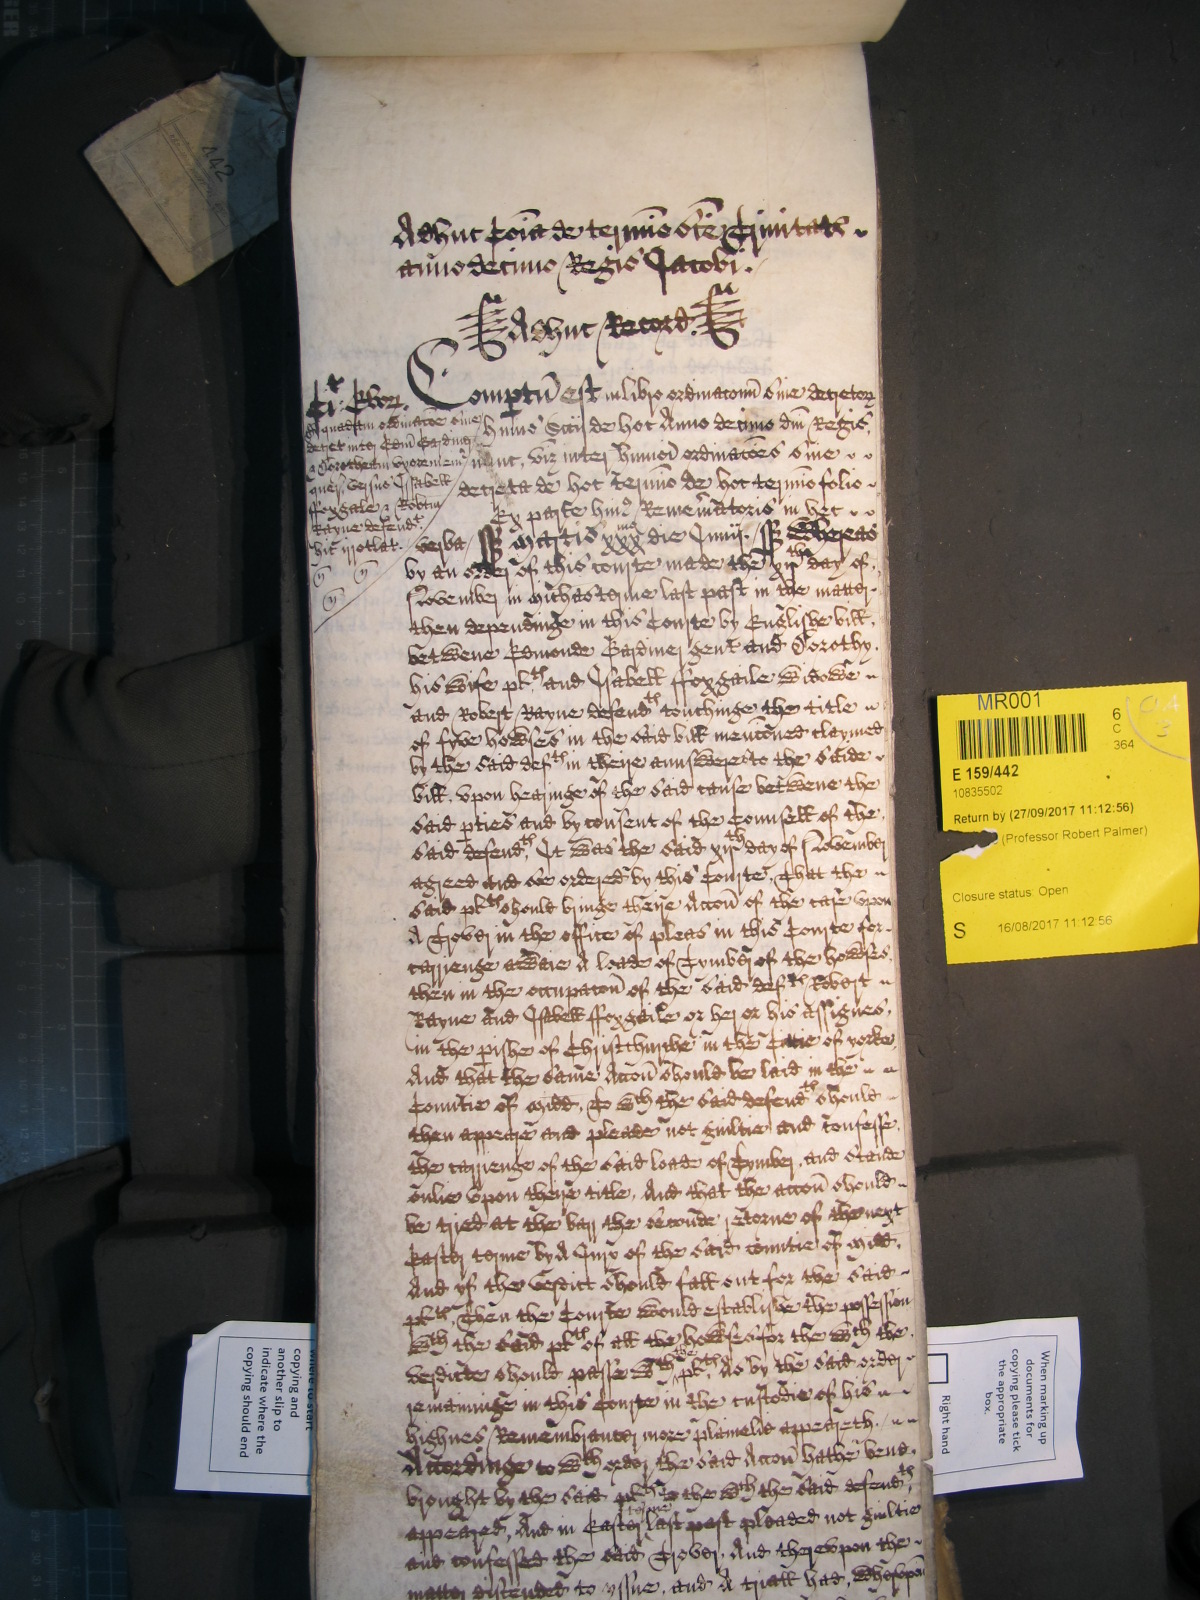 Adhuc Coia de termio Sce Trinitatis
anno decimo Regis Jacobi.
Adhuc Record.
Ebor.
de quadam ordinacoe sive
decret inter Edm Gardiner
& Dorotheam uxorem eius
quer versus Isabell
ffoxgale & Robtm
Rayne defendt
hic irrotlat.
Comptu est in libro ordinacom sive decretor
huius Sccii de hoc Anno decimo dni Regis
nunc, viz inter humoi ordinacoes sive
decreta de hoc termio de hoc termio folio
Ex parte huius Rememoratoris in hec
verba ss Martis xxx mo die Junii. ss Whereas
by an order of this Courte made the xijth day of
November in Michas terme last past in the matter
then dependinge in this Courte by Englishe bill,
betwene Edmonde Gardiner gent and Dorothy
his wife plth and Isabell ffoxgaile Widowe
and Robert Rayne defendth touchinge the title
of fyve howses in the said bill mencoed claymed
by the said defth in theire aunswere to the saide
bill, upon hearinge of the said cause betwene the
said pties and by consent of the Counsell of the
said defendth, It was the said xijth day of November
agreed and soe ordered by this Courte, That the
said plth should bringe theire Accon of the case upon
A Trover in the office of pleas in this Courte for
carrienge awaie A loade of Tymber of the howses
then in the occupacon of the said defth Robert
Rayne and Isabell ffoxgaile or her or his Assignes,
in the pishe of Christchurche in the Citie of yorke
And that the same Accon should be laid in the
Countie of Midd, To wth the said defendth should
then appeare and pleade not guiltie and confesse
the carrienge of the said loade of Tymber, and stande
onlie upon theire title, And that the accon should
be tried at the barr the seconde retorne of the next
Easter terme by A Jury of the said countie of Midd,
And yf the verdict should fall out for the said
plth, Then the Courte would establishe the possession
wth the said plth of all the howses for the wth the
verdicte should passe wth the plth, As by the said order
remaininge in this Courte in the custodie of his
highnes Remembrancer more plainelie appeareth.
Accordinge to wth order the said Accon hathe bene
brought by the said plth, To the wth the said defendth
appeared, And in Easter terme last past pleaded not guiltie
and confessed the said Trover, And thereupon the
matter discended to yssue, and A triall had, Whereupon
142
MR001
6
C
364
E 159/442
10835502
Return by (27/09/2017 11:12:56)
(Professor Robert Palmer)
Closure status: Open
S
16/08/2017 11:12:56
where to start
copying and
another slip to
indicate where the
copying should end
When marking up
documents for
copying please tick
the appropriate
box.
Right hand